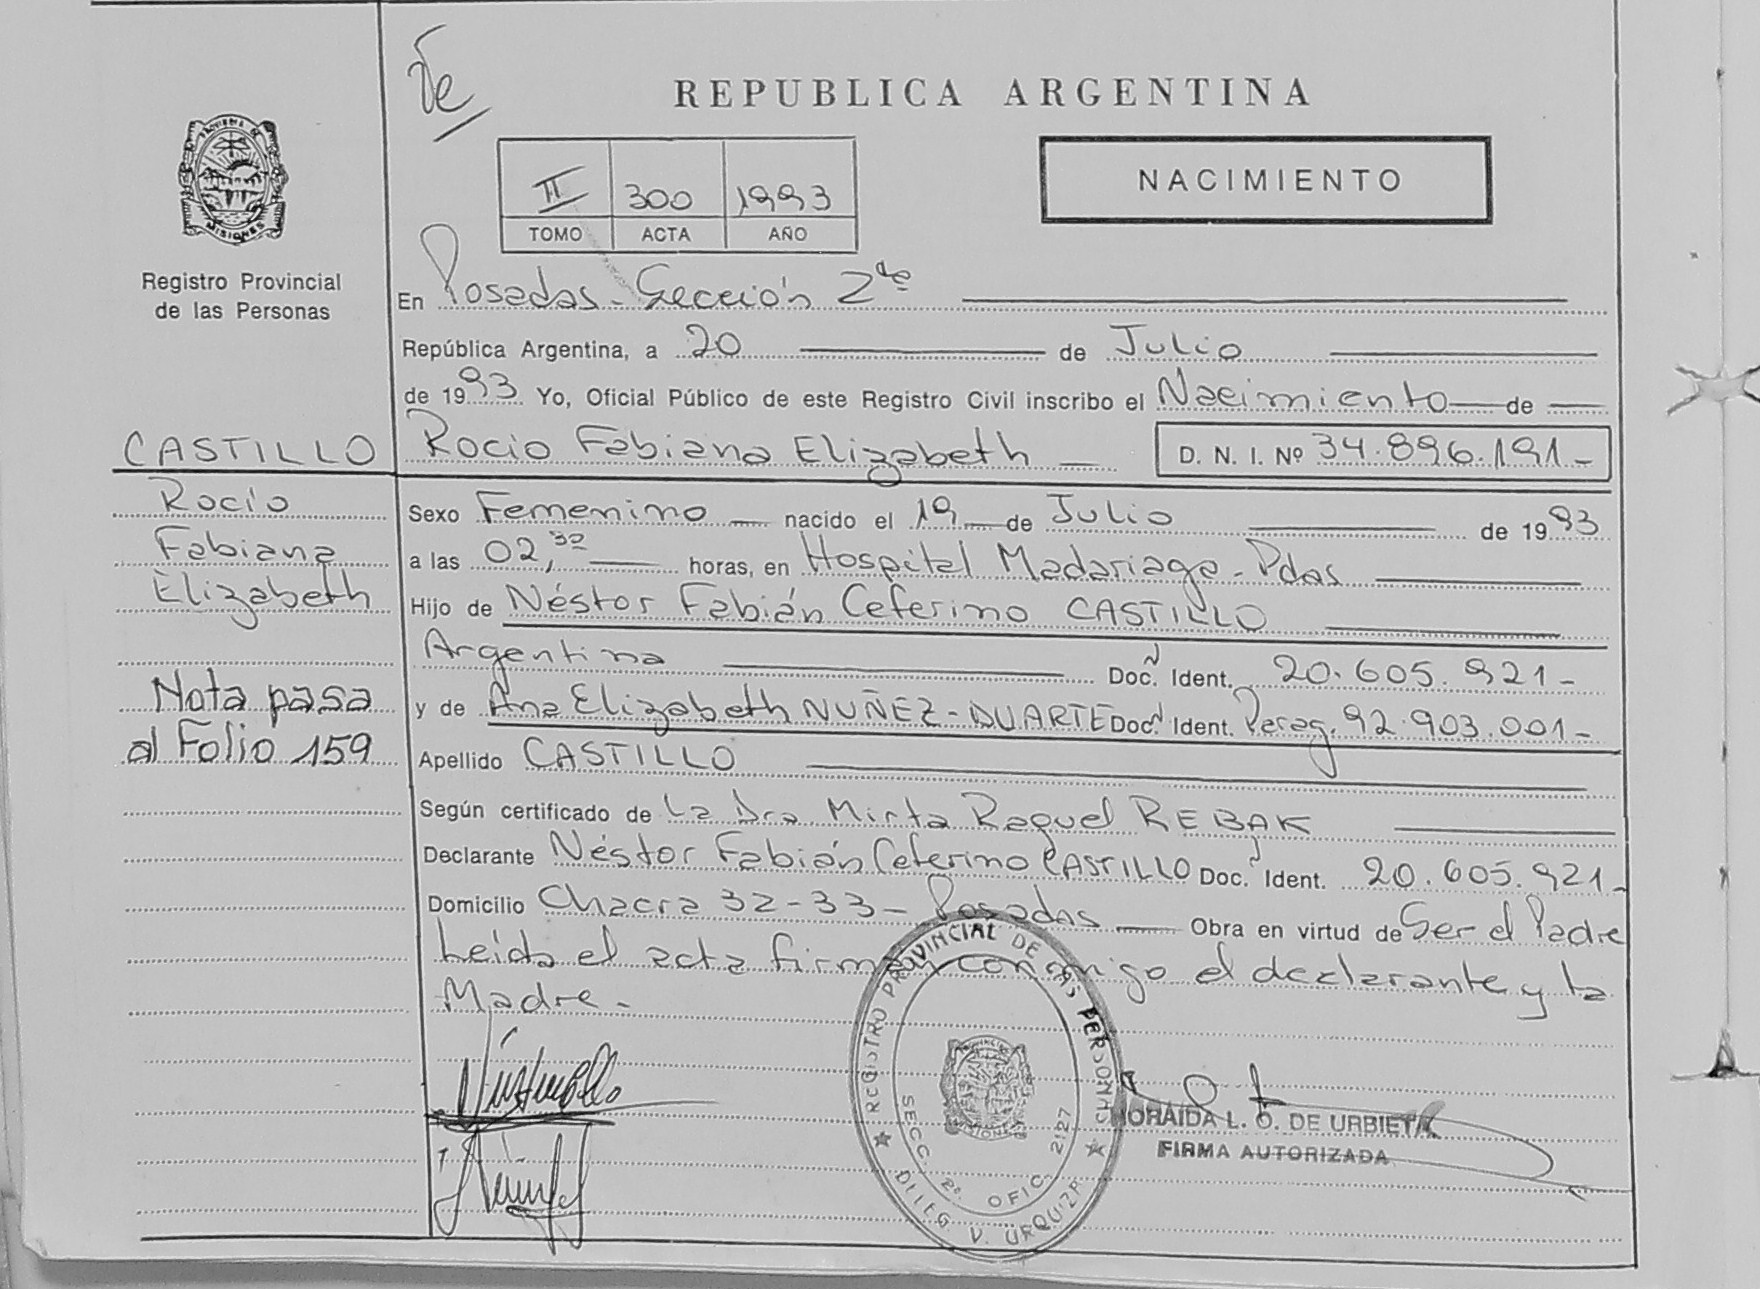 De
REPUBLICA ARGENTINA
PROVINCIA DE
MISIONES
Registro Provincial
de las Personas
II 300 1993
TOMO ACTA AÑO
NACIMIENTO
En Posadas - Sección 2da
República Argentina, a 20 de Julio
de 1993 Yo, Oficial Público de este Registro Civil inscribo el Nacimiento de
CASTILLO Rocio Fabiana Elizabeth D. N. I. Nº 34.896.191-
Rocío
Fabiana
Elizabeth
Nota pasa
al Folio 159
Sexo Femenino nacido el 19 de Julio de 1993
a las 02,32 horas, en Hospital Madariaga - Pdas
Hijo de Néstor Fabián Ceferino CASTILLO
Argentina Doc. N Ident. 20.605.921-
y de Ana Elizabeth NUÑEZ - DUARTE Doc. N Ident. Parag. 92.903.001-
Apellido CASTILLO
Según certificado de La Dra Mirta Raquel REBAK
Declarante Néstor Fabián Ceferino CASTILLO Doc. Ident. 20.605.921-
Domicilio Chacra 32-33 - Posadas Obra en virtud de Ser el Padre
Leída el acta firman conmigo el declarante y la
Madre -
REGISTRO PROVINCIAL DE LAS PERSONAS
SECC. 2º OFIC. 2127
DELEG. V. URQUIZA
MISIONES
NORAIDA L. O. DE URBIETA
FIRMA AUTORIZADA